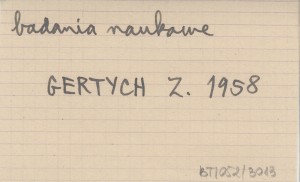 badania naukowe
GERTYCH Z. 1958
BT/052/3013